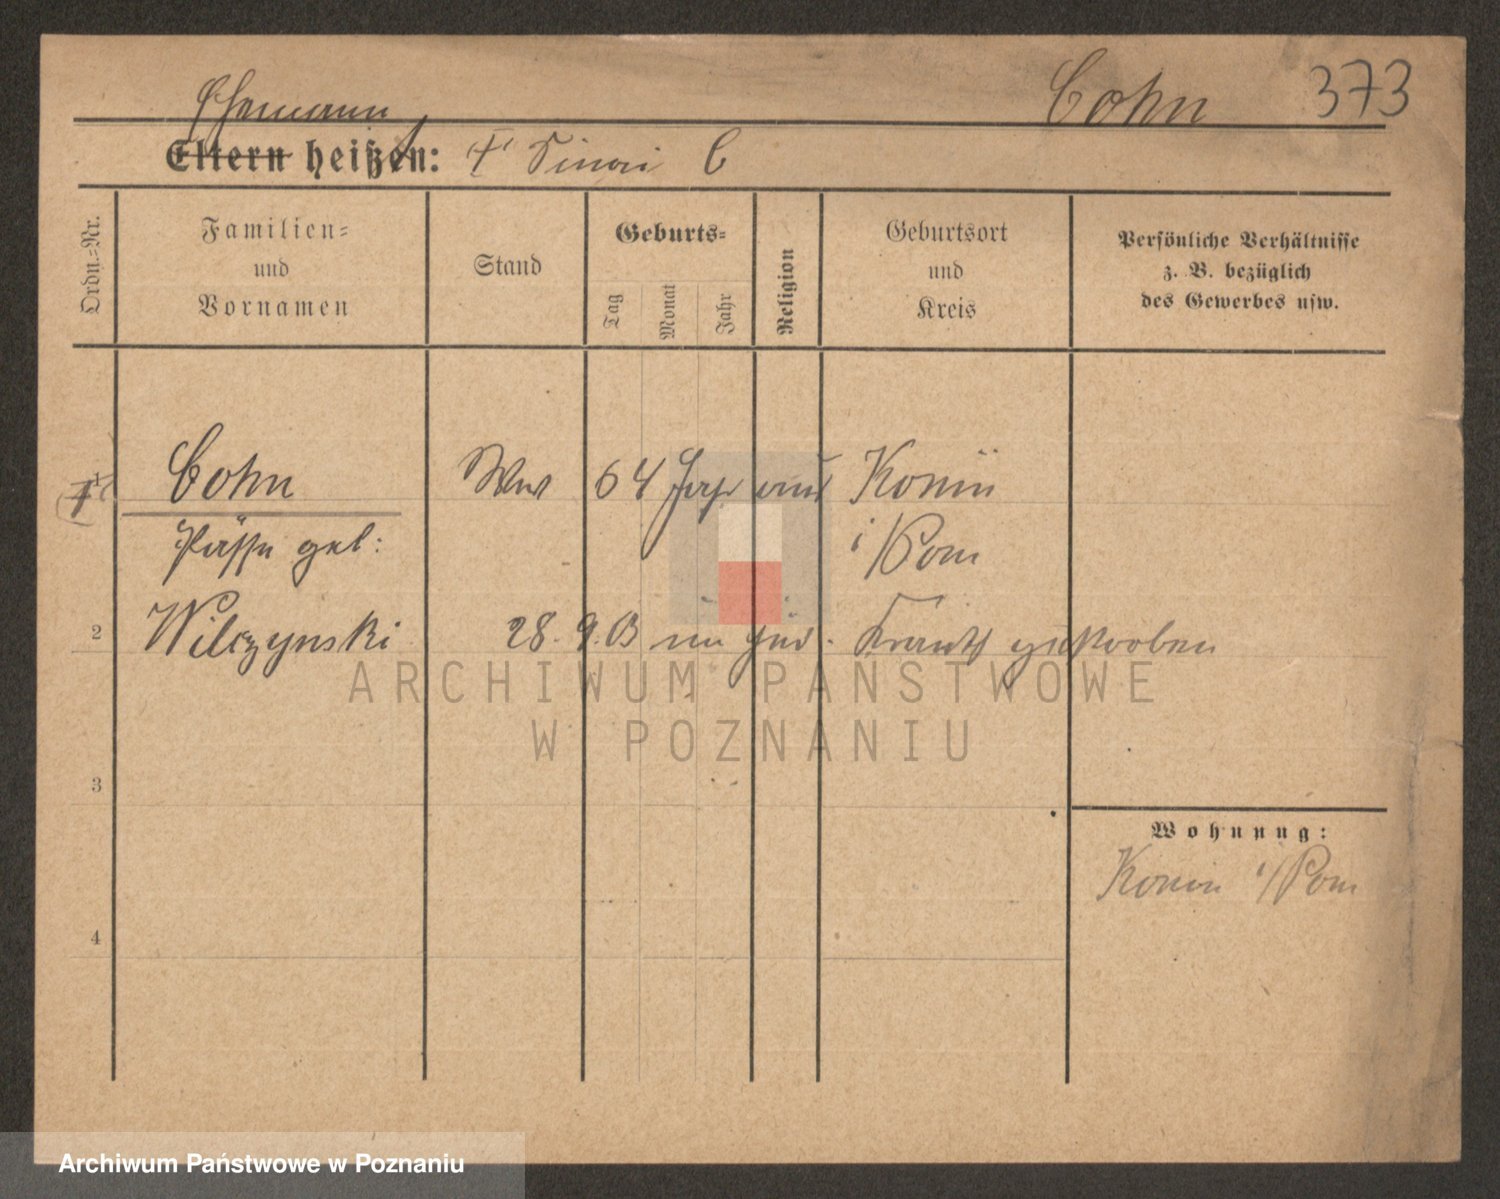 Cohn 373
Ehemann
Eltern heißen: Sinai C
Ordn.-Nr.
Familien-
und
Vornamen
Stand
Geburts-
Tag
Monat
Jahr
Religion
Geburtsort
und
Kreis
Persönliche Verhältnisse
z. B. bezüglich
des Gewerbes usw.
1 Cohn Ww 64 Jahr aus Konin
geb: i/Pom
2 Wilczynski 28. 9. 03 im jüd. Krankh gestorben
ARCHIWUM PAŃSTWOWE
W POZNANIU
3
Wohnung:
Konin i/Pom
4
Archiwum Państwowe w Poznaniu